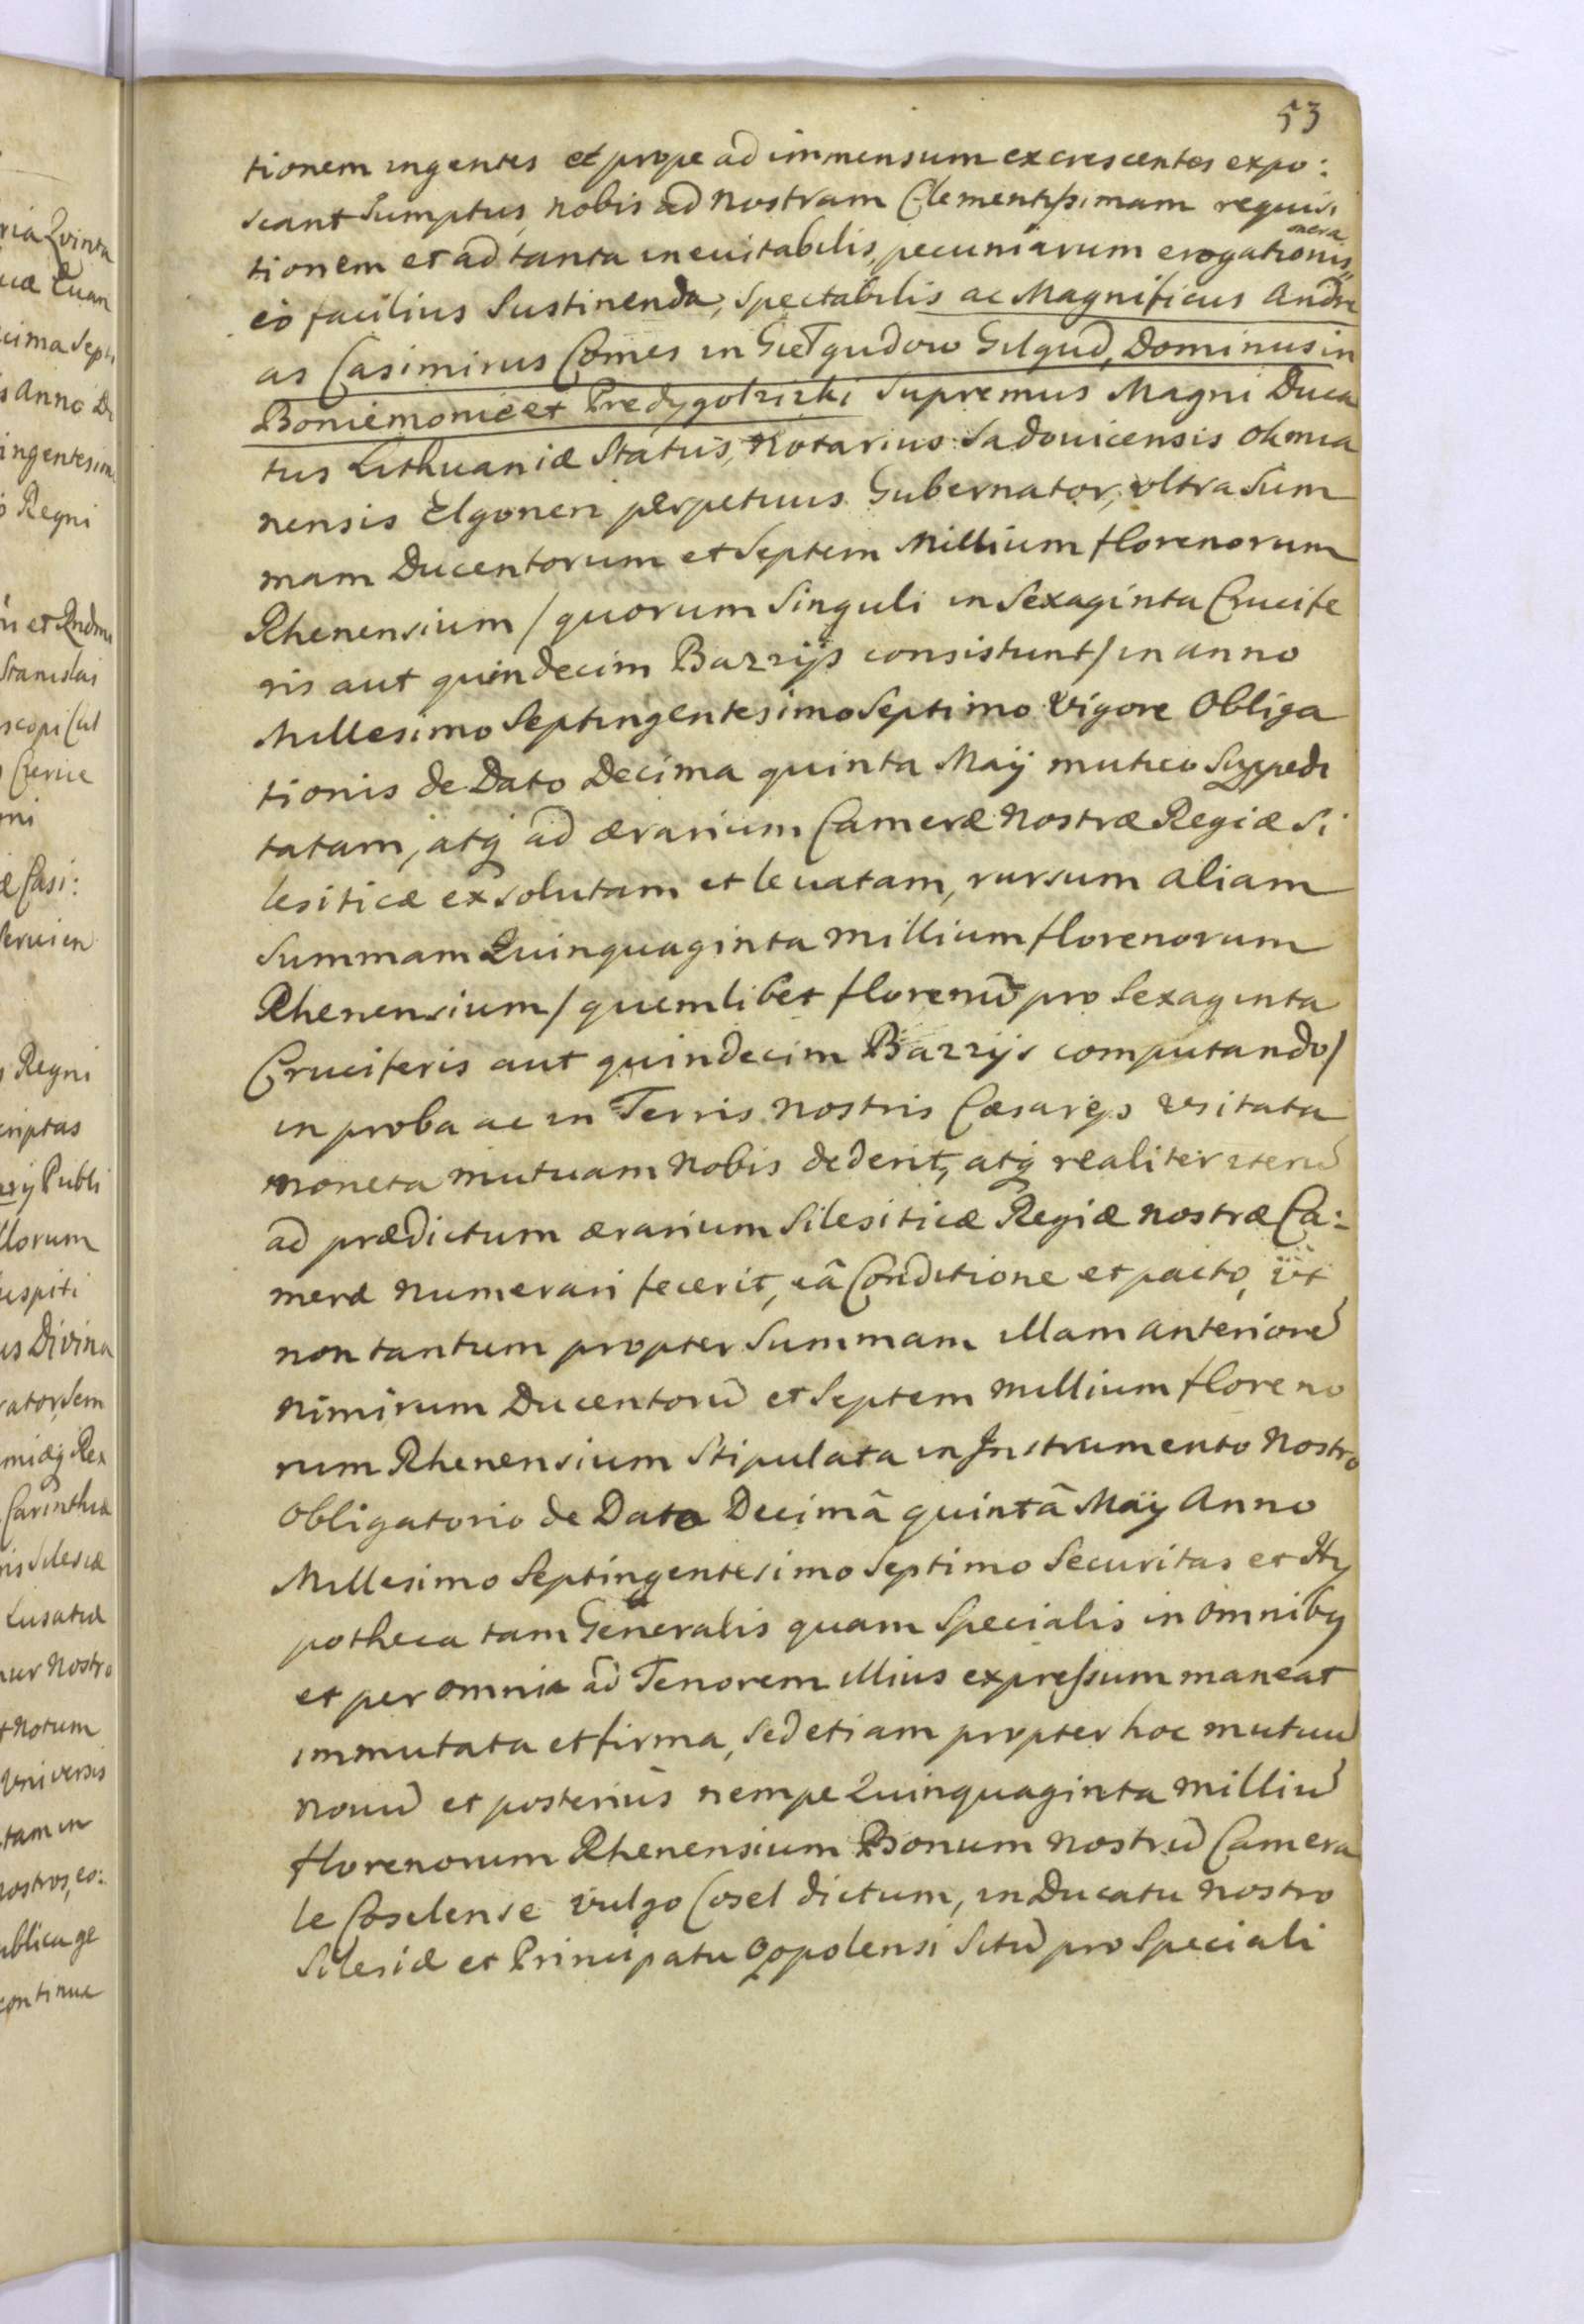 53
tionem ingentes et prope ad immensum excrescentes expo:
scant Sumptus, nobis ad nostram Clementissimam requisi
onera
tionem et ad tanta ineuitabilis, pecuniarum erogationis
eò facilius Sustinenda, Spectabilis ac Magnificus Andre
as Casimirus Comes in Gietgudow Gilgud, Dominus in
Boniemonie et Predygolziski Supremus Magni Duca
tus Lithuaniæ Status, Notarius Sadouicensis Okmia
nensis Elgonen perpetuus Gubernator, vltra Sum
mam Ducentorum et Septem Millium florenorum
Rhenensium / quorum Singuli in Sexaginta Crucife
ris aut quindecim Bazzijs consistunt / in anno
Millesimo Septingentesimo Septimo Vigore Obliga
tionis de Dato Decima quinta Maÿ mutuo Suppedi
tatam, atq ad ærarium Cameræ Nostræ Regiæ Si
lesiticæ exsolutam et leuatam, rursum aliam
Summam Quinquaginta Millium florenorum
Rhenensium / quemlibet florenū pro Sexaginta
Cruciferis aut quindecim Bazzijs computando /
in proba ac in Terris nostris Cæsareis vsitata
moneta mutuam Nobis dederit, atq realiter iterū
ad prædictum ærarium Silesiticæ Regiæ nostræ Ca:
meræ numerari fecerit, eâ Conditione et pacto, vt
non tantum propter Summam illam anteriorē
nimirum Ducentorū et Septem Millium floreno
rum Rhenensium Stipulata in Instrumento Nostro
Obligatorio de Dato Decimâ quintâ Maÿ Anno
Millesimo Septingentesimo Septimo Securitas et Hy
potheca tam Generalis quam Specialis in omnibq
et per omnia ad Tenorem illius expressum maneat
immutata et firma, Sed etiam propter hoc mutuū
nouū et posterius nempe Quinquaginta Milliū
florenorum Rhenensium Bonum nostrū Camera
le Coselense vulgo Cosel dictum, in Ducatu Nostro
Silesiæ et Principatu Oppolensi Sitū pro Speciali